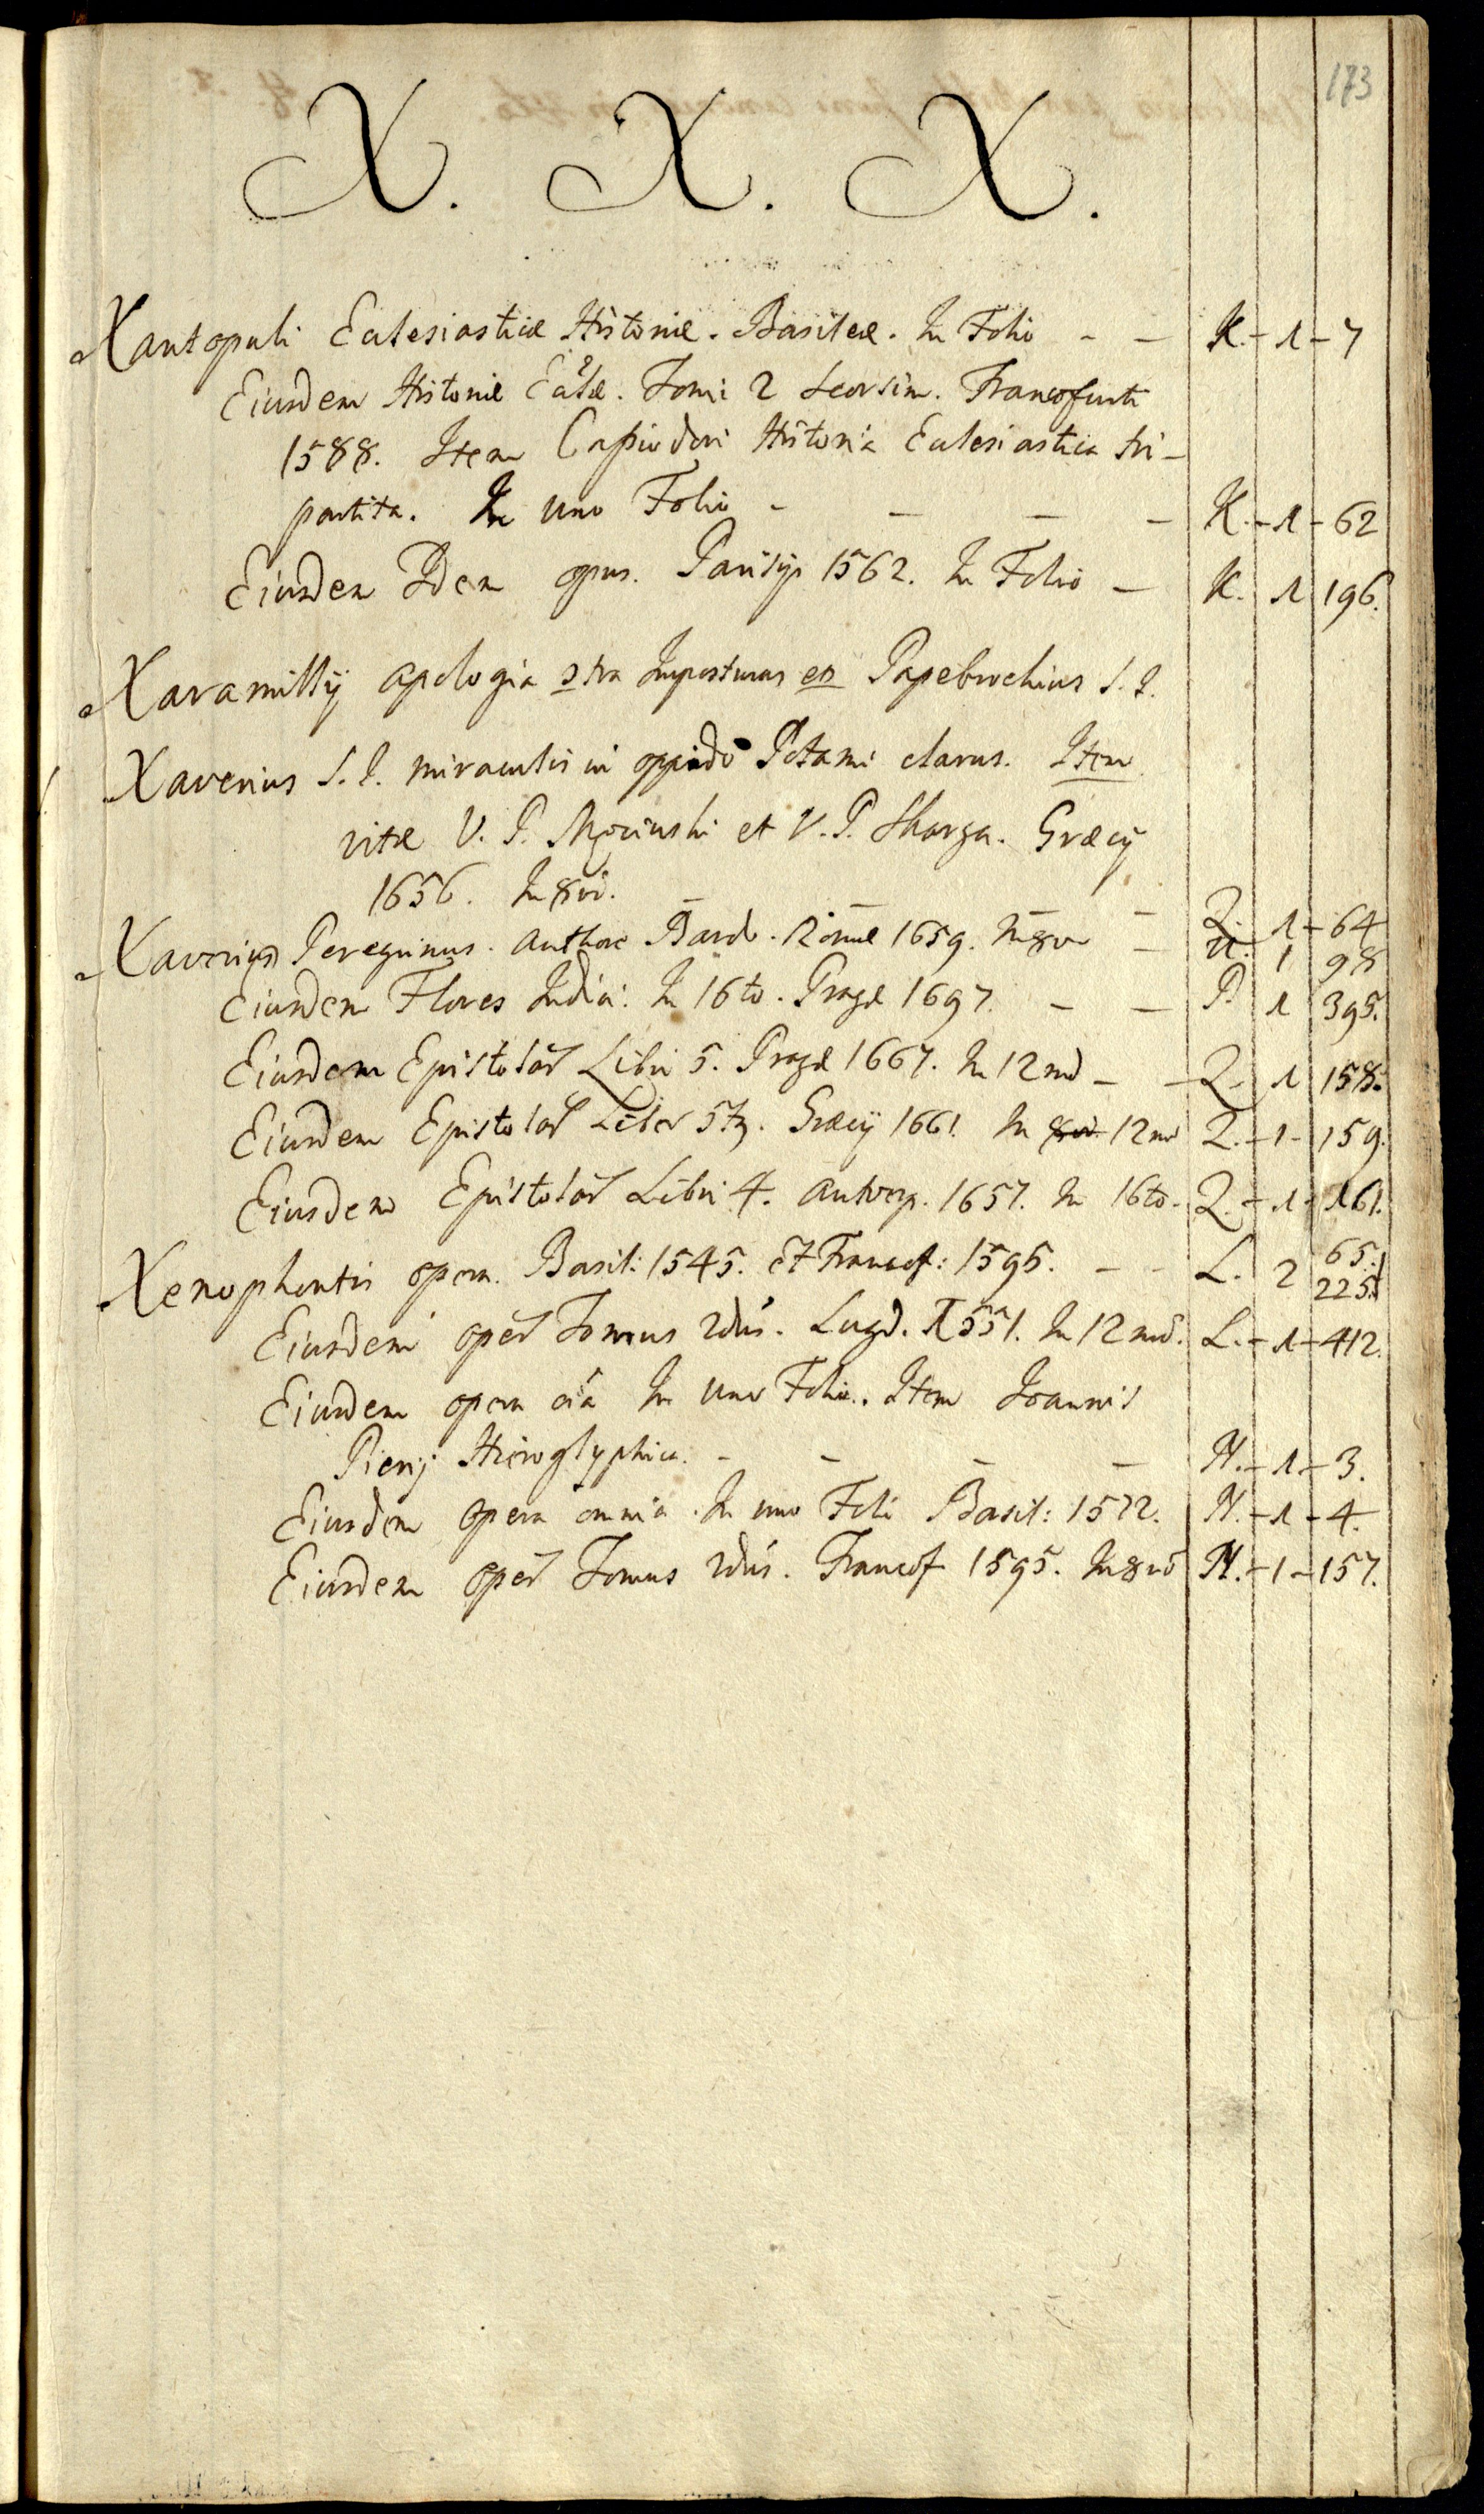 173
X. X. X.
Xantopuli Eclesiasticæ Historiæ. Basileæ. In Folio - - K. - 1 - 7
Eiusdem Historiæ Eccłæ. Tomi 2 seorsim. Francofurti
1588. Item Cassiodori Historia Eclesiastica tri-
partita. In uno Folio - - - - K. - 1 - 62
Eiusdem Idem opus. Parisijs 1562. In Folio - K. 1 196.
Xaramillij apologia ɔtra Imposturas Papebrochius S. I.
Xaverius S. I. miraculis in oppido Potami clarus. Item
vitæ V. P. Męcinski et V. P. Skarga. Græcij
1656. In 8vo. - - - - Q. 1 - 64
Xaverius Peregrinus. authore Bard. Romæ 1659. In 8vo - U. 1 98
Eiusdem Flores Indici: In 16to. Pragæ 1697. - - P. 1 395.
Eiusdem Epistolar̃ Libri 5. Pragæ 1667. In 12mo - - Q. 1 158.
Eiusdem Epistolar̃ Liber 5tg. Græcij 1661. In 8vo 12mo Q. - 1 - 159.
Eiusdem Epistolar̃ Libri 4. Antverp. 1657. In 16to. Q. - 1 - 161.
Xenophontis opera. Basil: 1545. et Francof: 1595. - - L. 2 65. 225.
Eiusdem oper̃ Tomus 2dus. Lugd. 1551. In 12mo. L. - 1 - 412.
Eiusdem opera oĩa In uno Folio. Item Joannis
Pierij Hieroglyphica. - - - - M. - 1 - 3.
Eiusdem opera omnia. In uno Foli Basil: 1572. M. - 1 - 4.
Eiusdem oper̃ Tomus 2dus. Francof 1595. In 8vo M. - 1 - 157.